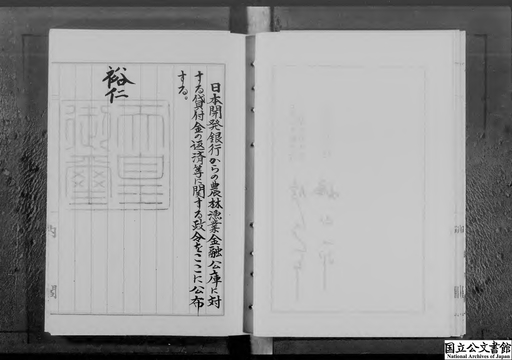 日本開発銀行からの農林漁業金融公庫に対
する貸付金の返済等に関する政令をここに公布
する。
裕仁
天皇
御璽
内閣
国立公文書館
National Archives of Japan